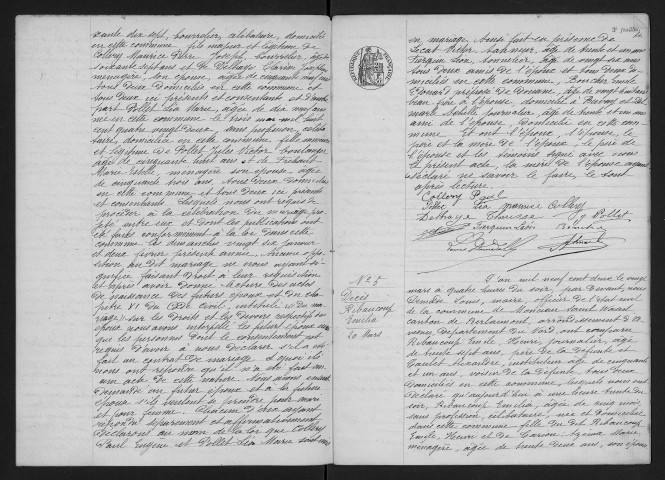 xante dix sept, bourrelier, célibataire, domicilié
en cette commune fils majeur et légitime de
Collery Maurice Pierre Joseph, bourrelier, âgé de
soixante sept ans et de Delhaye
ménagère, son épouse, âgée de cinquante neuf ans
tous deux domiciliés en cette commune et
tous deux ici présents et consentants et d'autre
part Pollet Léa Marie, âgée de dix neuf ans
née en cette commune le trois mai mil huit
cent quatre vingt deux, sans profession, céliba
taire, domiciliée en cette commune, fille mineure
et légitime de Pollet Jules Victor boulanger
âgé de cinquante huit ans et de
Marie Estelle, ménagère son épouse, âgée
de cinquante trois ans, tous deux domiciliés
en cette commune et tous deux ici présents
et consentants lesquels nous ont requis de
procéder à la célébration du mariage pro
jeté entre eux et dont les publications ont
été faites conformément à la loi dans cette
commune les dimanches vingt six janvier
et deux février présent année. Aucune oppo
sition au dit mariage ne nous ayant été si
gnifiée faisant droit à leur réquisition
et après avoir donné lecture des actes
de naissance des futurs époux et du cha
pitre VI du Code Civil, intitulé "du Ma
riage" sur les droits et les devoirs respectifs des
époux nous avons interpellé les futurs époux ainsi
que les personnes dont le consentement est
requis d'avoir à nous déclarer s'il a été
fait un contrat de mariage à quoi ils
nous ont répondu qu'il n'a été fait au
cun acte de cette nature. Nous avons ensuite
demandé au futur époux et à la future
épouse s'ils veulent se prendre pour mari
et pour femme. Chacun d'eux ayant
répondu séparément et affirmativement
déclarons au nom de la loi que Collery
Paul Eugène et Pollet Léa Marie sont unis
en mariage. Ainsi fait en présence de
Lecat Victor, âgé de trente et un ans
Turquin Léon, bourrelier, âgé de vingt six ans
tous deux amis de l'époux et tous deux do
miciliés en cette commune, Émile
Édouard préposé de Douane, âgé de vingt huit ans
beau frère à l'épouse, domicilié à et
journalier âgé de trente et un ans
ami de l'épouse domicilié en cette com
mune. Et ont l'époux, l'épouse, le
père et la mère de l'époux, le père de
l'épouse et les témoins signé avec nous
le présent acte, la mère de l'épouse ayant
déclaré ne savoir le faire, le tout
après lecture.
Collery Paul
Pollet Léa Maurice Collery
Delhaye J Pollet
Turquin Léon
N° 5
Décès
Ribaucoup
Émilia
20 Mars
L'an mil neuf cent deux le vingt
mars à quatre heures du soir, par devant, nous
Louis, maire, officier de l'état civil
de la commune de Monceau Saint Waast
canton de Berlaimont, arrondissement d'Avesnes
département du Nord ont comparu
Ribaucoup Émile, Henri, journalier, âgé
de trente sept ans, père de la défunte et
Alexandre instituteur âgé de cinquante
et un ans, voisin de la défunte tous deux
domiciliés en cette commune, lesquels nous ont
déclaré qu'aujourd'hui à une heure trente du
soir, Ribaucoup Émilia âgée de cinq mois
sans profession, célibataire, née et domiciliée
dans cette commune fille du dit Ribaucoup
Émile, Henri et de Marie
ménagère, âgée de trente deux ans, son épouse